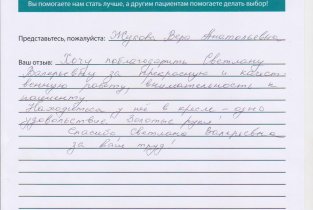 Вы помогаете нам стать лучше, а другим пациентам помогаете делать выбор!
Представьтесь, пожалуйста: Жукова Вера Анатольевна
Ваш отзыв: Хочу поблагодарить Светлану
Валерьевну за прекрасную и качест-
венную работу, внимательность к
пациенту.
Находиться у неё в кресле - одно
удовольствие! Золотые руки!
Спасибо Светлана Валерьевна
за Ваш труд!